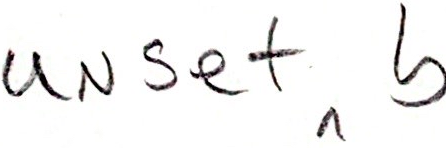 unset ‸ b